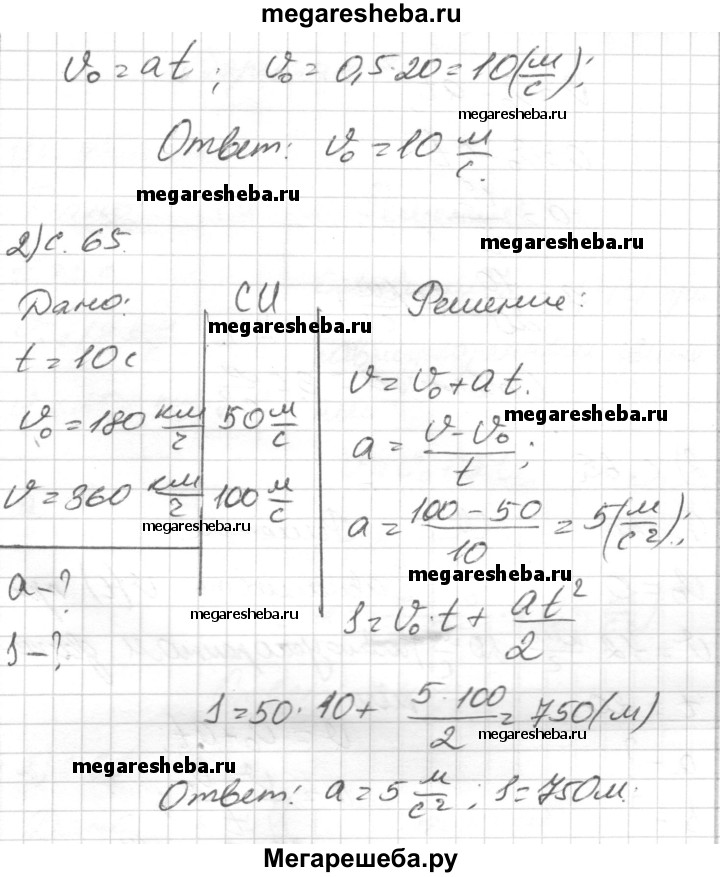 megaresheba.ru
v₀ = at ; v₀ = 0,5·20 = 10(м/с);
megaresheba.ru
Ответ: v₀ = 10 м/с.
megaresheba.ru
2) с. 65.
megaresheba.ru
Дано: СИ Решение:
megaresheba.ru
t = 10 с
v = v₀ + at.
v₀ = 180 км/ч 50 м/с
megaresheba.ru
a = (v - v₀)/t ;
v = 360 км/ч 100 м/с
megaresheba.ru
a = (100 - 50)/10 = 5(м/с²);
megaresheba.ru
a - ?
megaresheba.ru
s = v₀·t + at²/2
s - ?
s = 50·10 + 5·100/2 = 750(м)
megaresheba.ru
megaresheba.ru
Ответ: a = 5 м/с² ; s = 750м.
Мегарешеба.ру